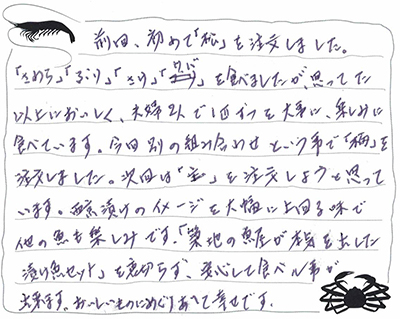 前回、初めて「松」を注文しました。
「さわら」「ぶり」「さけ」「」を食べましたが、思ってた
以上においしく、夫婦2人で1回ずつを大事に、楽しみに
食べています。今回別の組み合わせという事で「福」を
注文しました。次回は「宝」を注文しようと思って
います。西京漬けのイメージを大幅に上回る味で
他の魚も楽しみです。「築地の魚屋が本気を出した
漬け魚セット」を裏切らず、安心して食べれる事が
出来ます。おいしいものにめぐりあえて幸せです。